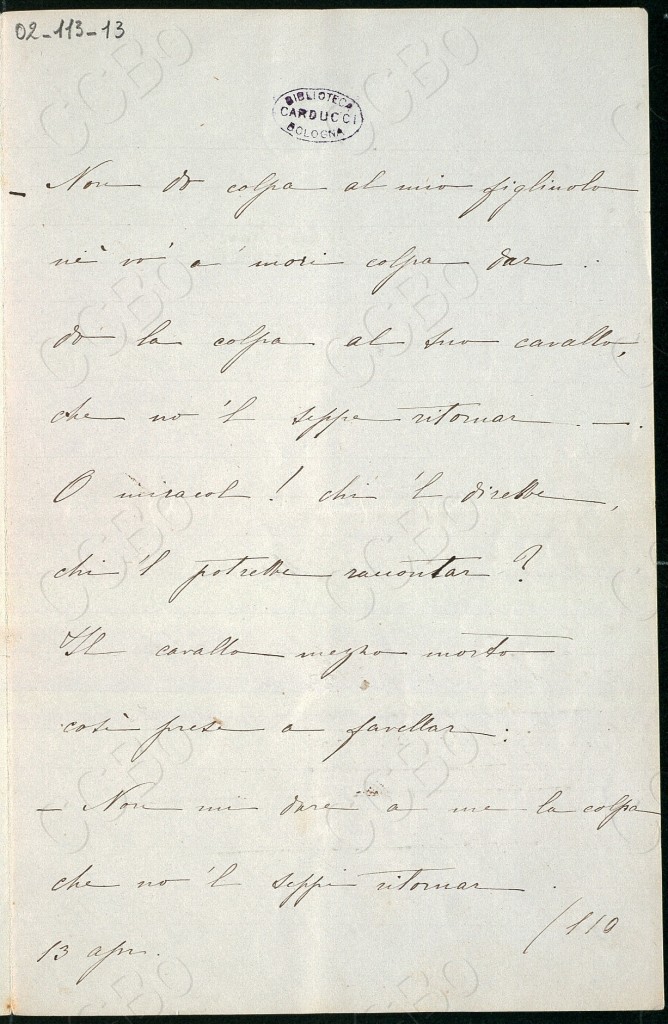 02-113-13
BIBLIOTECA
CARDUCCI
BOLOGNA
— Non do colpa al mio figliuolo
nè vo' a' mori colpa dar :
do la colpa al suo cavallo,
che no 'l seppe ritornar — .
O miracol! chi 'l direbbe,
chi 'l potrebbe raccontar?
Il cavallo mezzo morto
così prese a favellar:
— Non mi dare a me la colpa
che no 'l seppi ritornar .
/110
13 apr.